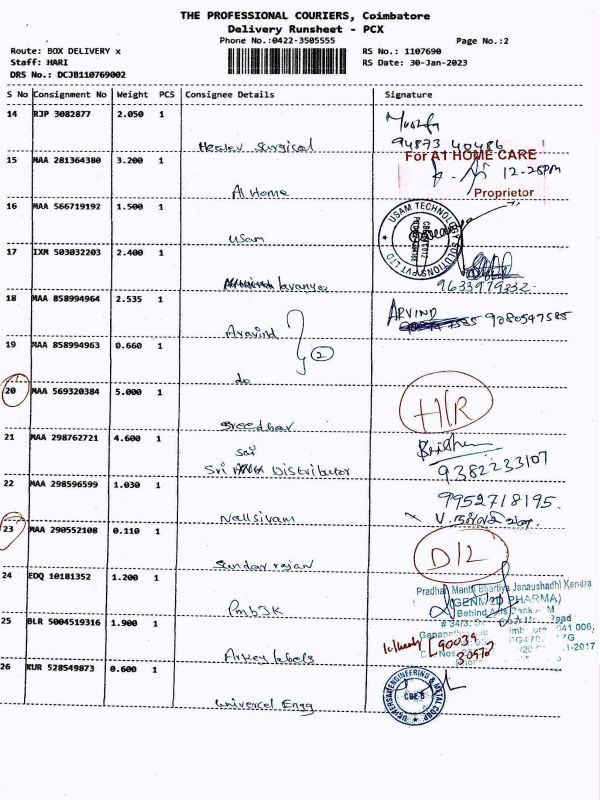 THE PROFESSIONAL COURIERS, Coimbatore
Delivery Runsheet - PCX
Phone No.:0422-3505555 Page No.:2
Route: BOX DELIVERY x RS No.: 1107690
Staff: HARI RS Date: 30-Jan-2023
DRS No.: DCJB110769002
S No Consignment No Weight PCS Consignee Details Signature
14 RJP 3082877 2.050 1
Surgical 94873 40486
For A1 HOME CARE
15 MAA 281364380 3.200 1 12-25PM
A1 Home Proprietor
16 MAA 566719192 1.500 1 USAM TECHNOLOGY SOLUTIONS PVT LTD
Usam
17 IXM 503032203 2.400 1
Lavanya 9633979332
18 MAA 858994964 2.535 1 ARVIND 9080547585
Aravind
19 MAA 858994963 0.660 1 2
do
20 MAA 569320384 5.000 1 H/R
Sreedhar
21 MAA 298762721 4.600 1
Sai
Sri Distributor 9382233107
22 MAA 298596599 1.030 1 9952718195.
Nallsivam
23 MAA 290552108 0.110 1 D/L
Sundar rajan
24 EDQ 10181352 1.200 1 Pradhan Mantri Bhartiya Janaushadhi Kendra
(PHARMA)
PmbJK Behind
25 BLR 5004519316 1.900 1 641 006,
90039
Arkey labels 30970
26 KUR 528549873 0.600 1 UNIVERSAL ENGINEERING & METAL CORP
CBE-6
Universel Engg